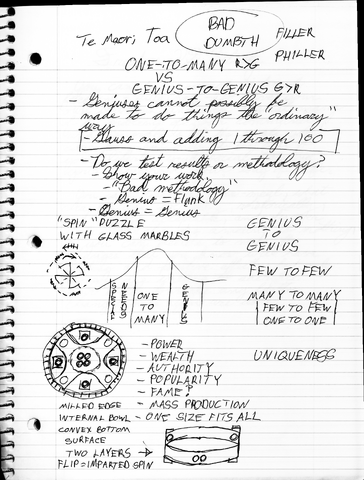 Te Maori Toa
BAD
DUMBTH
FILLER
PHILLER
ONE-TO-MANY R>G
VS
GENIUS-TO-GENIUS G>R
- Geniuses cannot possibly be
made to do things the "ordinary"
way
- Gauss and adding 1 through 100
- Do we test results or methodology?
- Show your work
- "Bad methodology"
Genius = Flank
- Genius = Genius
"SPIN" PUZZLE
WITH GLASS MARBLES
GENIUS
TO
GENIUS
FEW TO FEW
MANY TO MANY
FEW TO FEW
ONE TO ONE
UNIQUENESS
SPECIAL
NEEDS
ONE
TO
MANY
GENIUS
- POWER
- WEALTH
- AUTHORITY
- POPULARITY
- FAME?
- MASS PRODUCTION
- ONE SIZE FITS ALL
MILLED EDGE
INTERNAL BOWL
CONVEX BOTTOM
SURFACE
TWO LAYERS
FLIP = IMPARTED SPIN